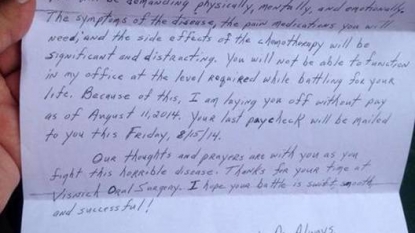 be demanding physically, mentally, and emotionally.
The symptoms of the disease, the pain medications you will
need, and the side effects of the chemotherapy will be
significant and distracting. You will not be able to function
in my office at the level required while battling for your
life. Because of this, I am laying you off without pay
as of August 11, 2014. Your last paycheck will be mailed
to you this Friday, 8/15/14.
Our thoughts and prayers are with you as you
fight this horrible disease. Thanks for your time at
Visnich Oral Surgery. I hope your battle is swift, smooth
and successful!
Always